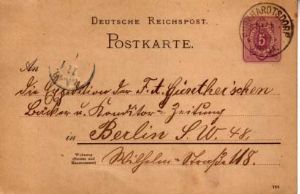 DEUTSCHE REICHSPOST.
POSTKARTE.
An
die Expedition der F. A. Günther'schen
Bäcker u. Konditor-Zeitung
in Berlin S.W. 48,
Wohnung
(Strasse und
Hausnummer)
Wilhelm-Straße 118.